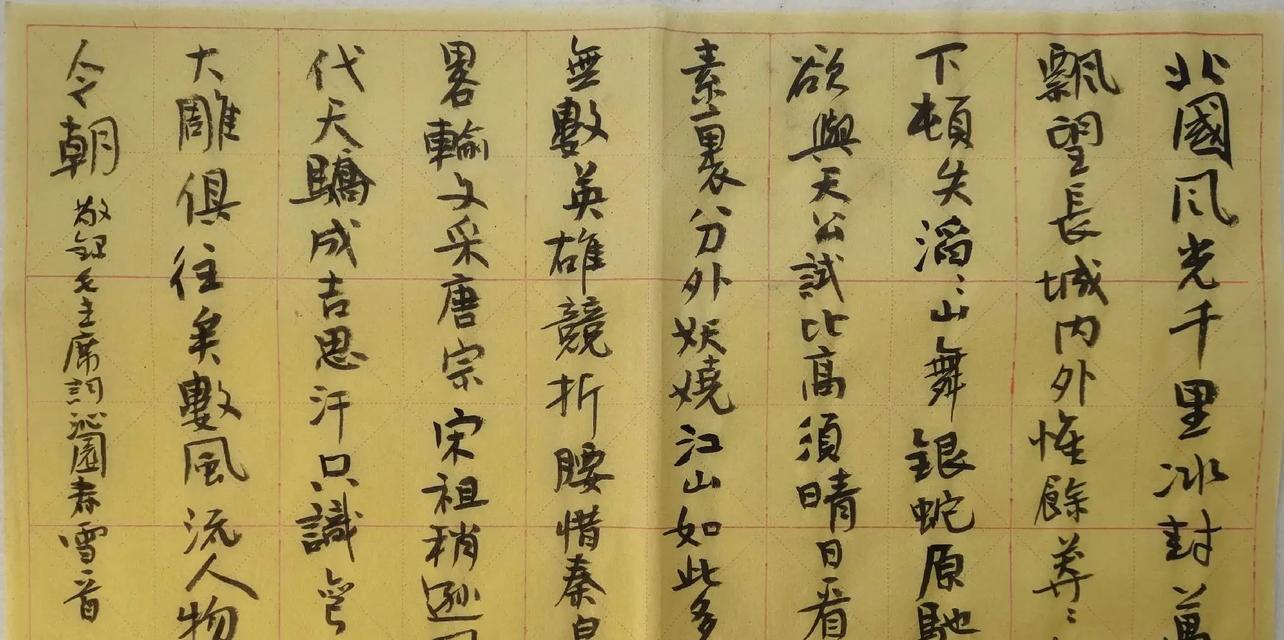 北國风光千里冰封萬
飄望長城内外惟餘莽〻
下頓失滔〻山舞銀蛇原馳
欲與天公試比高須晴日看
素裹分外妖嬈江山如此多
無數英雄競折腰惜秦皇
畧輸文采唐宗宋祖稍遜
代天驕成吉思汗只識彎
大雕俱往矣數風流人物
今朝 敬錄毛主席詞沁園春雪一首